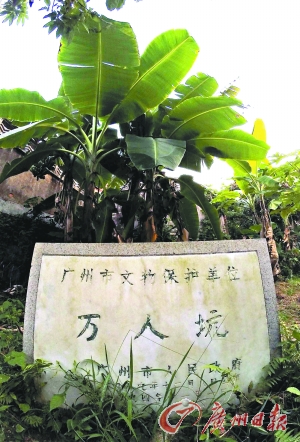 广州市文物保护单位
万人坑
广州市人民政府
广州日报